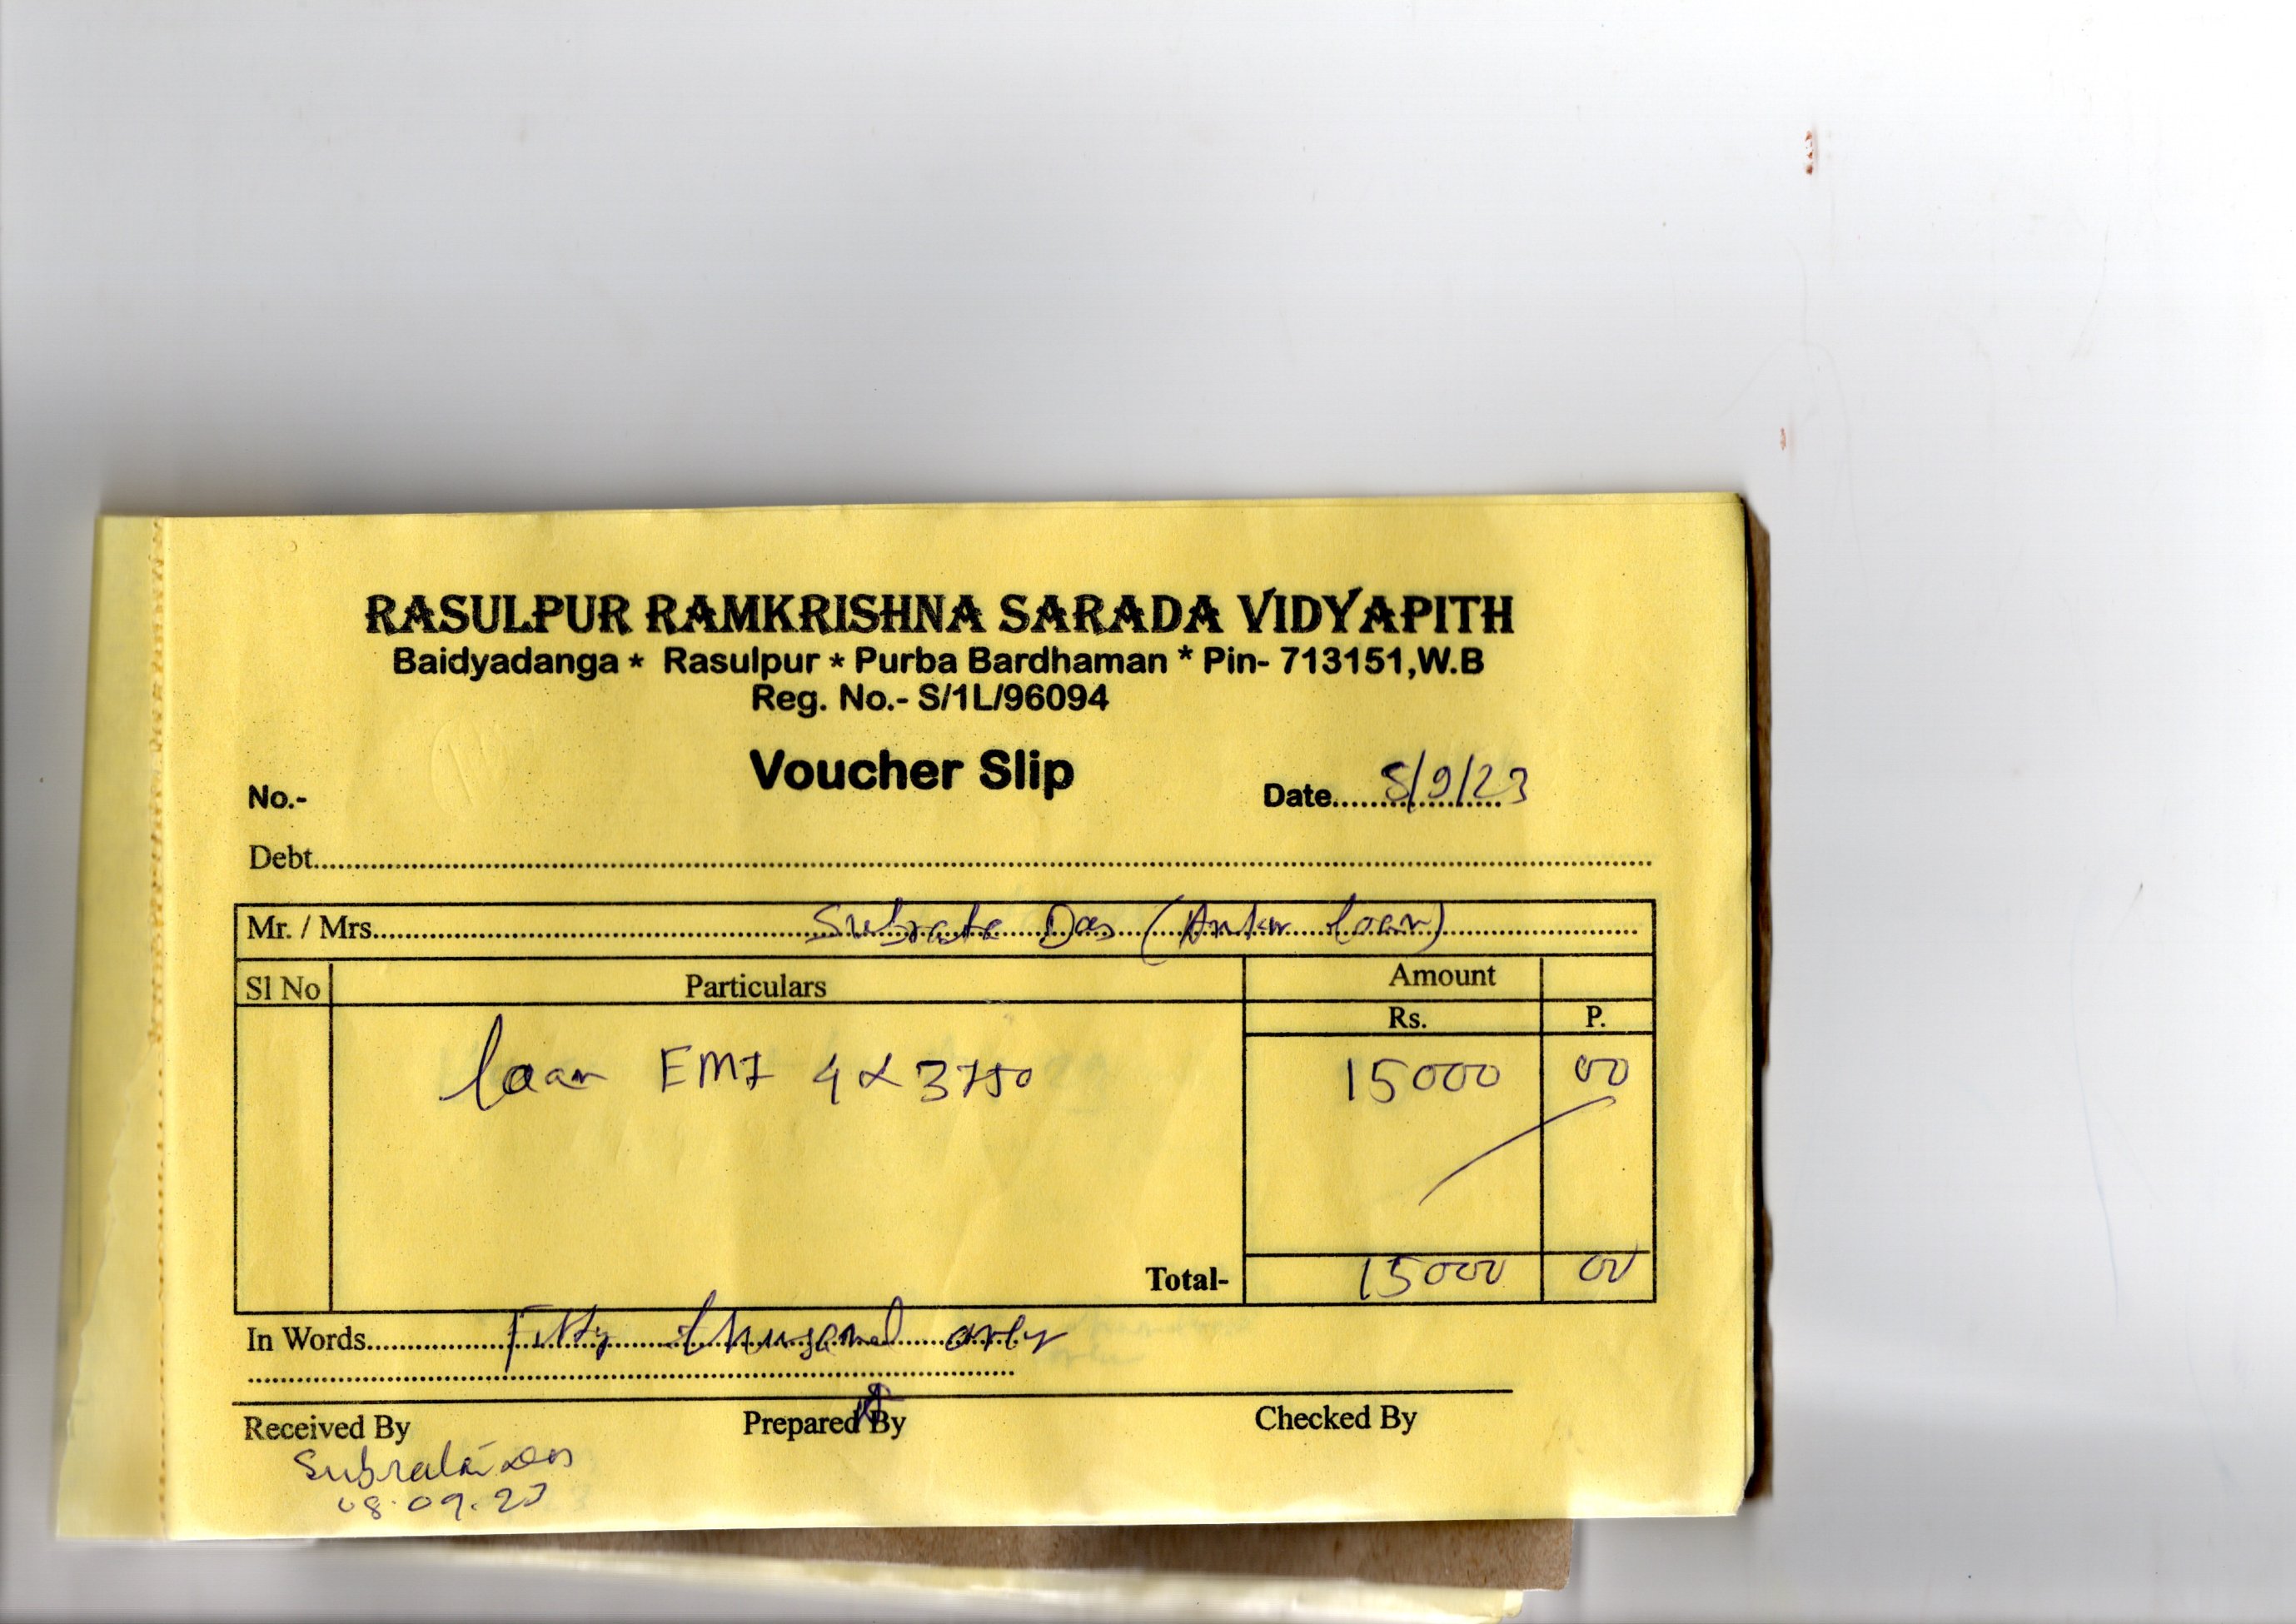 RASULPUR RAMKRISHNA SARADA VIDYAPITH
Baidyadanga * Rasulpur * Purba Bardhaman * Pin- 713151,W.B
Reg. No.- S/1L/96094
Voucher Slip
No.- Date 8/9/23
Debt
Mr. / Mrs. Subrata Das ( loan)
Sl No Particulars Amount
Rs. P.
loan EMI 4 x 3750 15000 00
Total- 15000 00
In Words Fifty thousand only
Received By Prepared By Checked By
Subrata Das
08.09.23